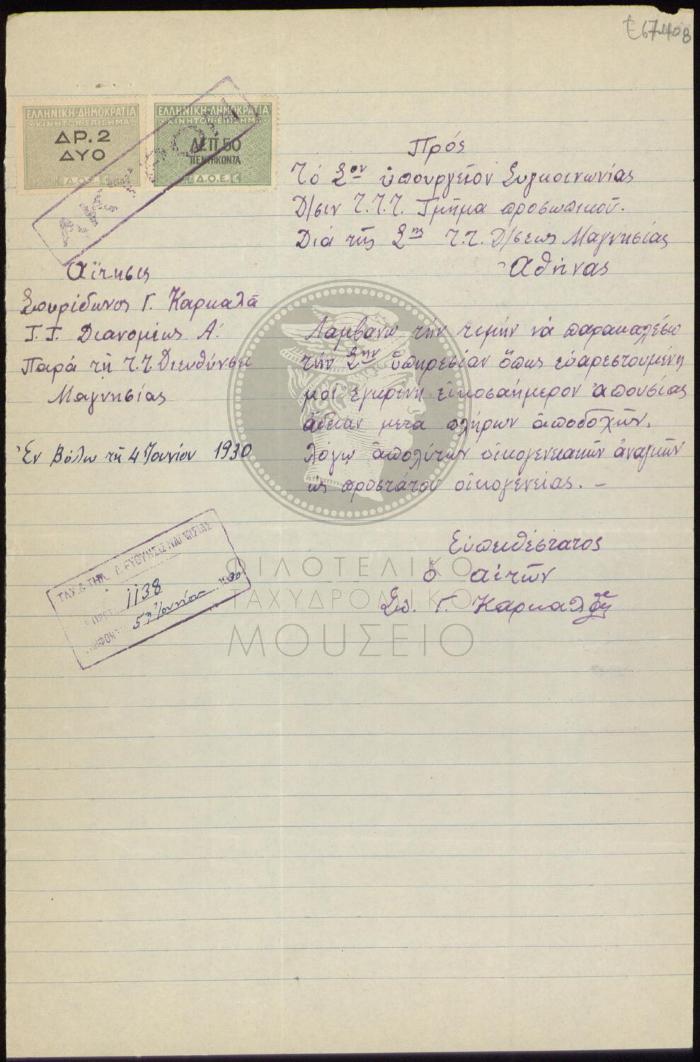 Ε67408
ΕΛΛΗΝΙΚΗ·ΔΗΜΟΚΡΑΤΙΑ
ΚΙΝΗΤΟΝ·ΕΠΙΣΗΜΑ
ΔΡ. 2
ΔΥΟ
Δ.Ο.Ε.
ΕΛΛΗΝΙΚΗ·ΔΗΜΟΚΡΑΤΙΑ
ΚΙΝΗΤΟΝ·ΕΠΙΣΗΜΑ
ΛΕΠ. 50
ΠΕΝΤΗΚΟΝΤΑ
Δ.Ο.Ε.
Πρός
Τό Σον ὑπουργεῖον Συγκοινωνίας
Δ/σιν Τ.Τ.Τ. Τμῆμα προσωπικοῦ.
Διά τῆς Σης Τ.Τ. Δ/σεως Μαγνησίας
Ἀθήνας
Αἴτησις
Σπυρίδωνος Γ. Καρκαλᾶ
Τ.Τ. Διανομέως Α′
Παρά τῇ Τ.Τ Διευθύνσει
Μαγνησίας
Ἐν Βόλῳ τῇ 4 Ἰουνίου 1930
Λαμβάνω τήν τιμήν νά παρακαλέσω
τήν Σην ὑπηρεσίαν ὅπως εὐαρεστουμένη
μοί ἐγκρίνῃ εἰκοσαήμερον ἀπουσίας
ἄδειαν μετά πλήρων ἀποδοχῶν.
λόγῳ ἀπολύτων οἰκογενειακῶν ἀναγκῶν
ὡς προστάτου οἰκογενείας. —
Εὐπειθέστατος
ὁ αἰτῶν
Σπ. Γ. Καρκαλᾶς
1138
5 Ἰουνίου 1930
ΦΙΛΟΤΕΛΙΚΟ
ΤΑΧΥΔΡΟΜΙΚΟ
ΜΟΥΣΕΙΟ